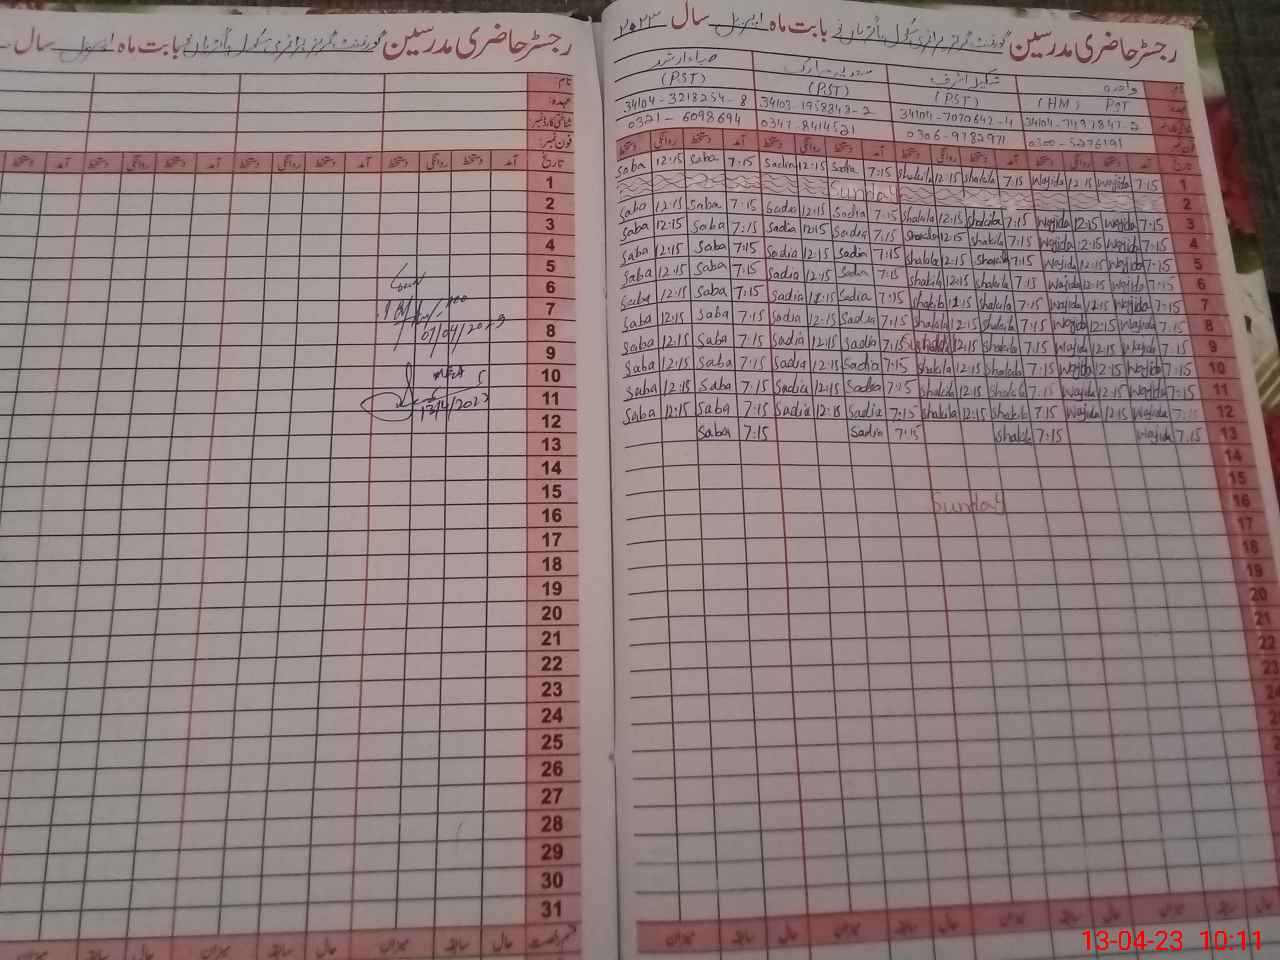 رجسٹر حاضری مدرسین گورنمنٹ گرلز پرائمری سکول بابت ماہ اپریل سال ۲۰۲۳
نام: واجدہ شکیلہ اشرف سعدیہ مبارک صباء ارشد
عہدہ: PST (HM) (PST) (PST) (PST)
34104-7491847-2 34104-7070642-4 34103-1958848-2 34104-3218254-8
0300-5276191 0306-9782971 0347-8414521 0321-6098694
تاریخ آمد دستخط روانگی دستخط آمد دستخط روانگی دستخط آمد دستخط روانگی دستخط آمد دستخط روانگی دستخط
saba 12:15 saba 7:15 sadia 12:15 sadia 7:15 shakila 12:15 shakila 7:15 wajida 12:15 wajida 7:15 1
Sunday 2
saba 12:15 saba 7:15 sadia 12:15 sadia 7:15 shakila 12:15 shakila 7:15 wajida 12:15 wajida 7:15 3
saba 12:15 saba 7:15 sadia 12:15 sadia 7:15 shakila 12:15 shakila 7:15 wajida 12:15 wajida 7:15 4
saba 12:15 saba 7:15 sadia 12:15 sadia 7:15 shakila 12:15 shakila 7:15 wajida 12:15 wajida 7:15 5
saba 12:15 saba 7:15 sadia 12:15 sadia 7:15 shakila 12:15 shakila 7:15 wajida 12:15 wajida 7:15 6
saba 12:15 saba 7:15 sadia 12:15 sadia 7:15 shakila 12:15 shakila 7:15 wajida 12:15 wajida 7:15 7
saba 12:15 saba 7:15 sadia 12:15 sadia 7:15 shakila 12:15 shakila 7:15 wajida 12:15 wajida 7:15 8
saba 12:15 saba 7:15 sadia 12:15 sadia 7:15 12:15 shakila 7:15 wajida 12:15 wajida 7:15 9
saba 12:15 saba 7:15 sadia 12:15 sadia 7:15 shakila 12:15 shakila 7:15 wajida 12:15 wajida 7:15 10
saba 12:15 saba 7:15 sadia 12:15 sadia 7:15 shakila 12:15 shakila 7:15 wajida 12:15 wajida 7:15 11
saba 12:15 saba 7:15 sadia 12:15 sadia 7:15 shakila 12:15 shakila 7:15 wajida 12:15 wajida 7:15 12
saba 7:15 sadia 7:15 shakila 7:15 wajida 7:15 13
14
15
Sunday 16
17
18
19
20
21
22
میزان سابقہ حال میزان سابقہ حال میزان سابقہ حال میزان سابقہ حال
رجسٹر حاضری مدرسین گورنمنٹ گرلز پرائمری سکول بابت ماہ اپریل سال
نام:
عہدہ:
شناختی کارڈ نمبر:
فون نمبر:
تاریخ آمد دستخط روانگی دستخط آمد دستخط روانگی دستخط آمد دستخط روانگی دستخط
1
2
3
4
5
6
7
07/04/2023
8
9
10
MEA
11
13/4/2023
12
13
14
15
16
17
18
19
20
21
22
23
24
25
26
27
28
29
30
31
حال سابقہ میزان حال سابقہ میزان حال سابقہ میزان
13-04-23 10:11